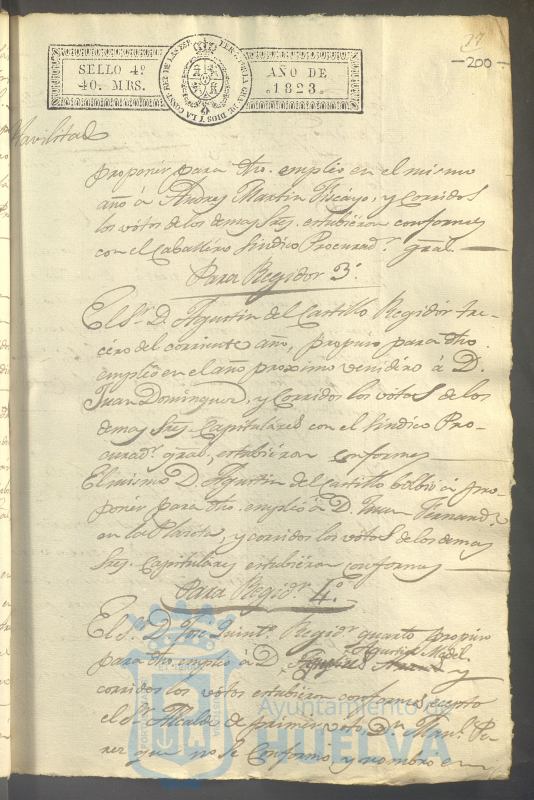 27
—200—
SELLO 4º
40. MRS.
AÑO DE
1823.
Havilitad
proponer para dho. empleo en el mismo
año á Andres Martin Viscayo, y corridos
los votos de los demas Sres. estubieron conformes
con el Caballero Sindico Procurad.r gral.
Para Regidor 3.º
El S.r D. Agustin del Castillo Regidor ter-
cero del corriente año, propuso para dho.
empleo en el año proximo venidero á D.
Juan Dominguez, y corridos los votos de los
demas Sres. Capitulares con el Sindico Pro-
curad.r gral, estubieron conformes
El mismo D. Agustin del Castillo bolbio á pro-
poner para dho. empleo á D. Juan Fernand.z
en la Placeta, y corridos los votos de los demas
Sres. Capitulares estubieron conformes
Para Regid.r 4.º
El S.r D. Jose Quint.o Regid.r quarto propuso
para dho. empleo á D. Agustin Medel y
corridos los votos estubieron conformes, esepto
el S.r Alcalde de primer voto, D.n Man.l Pe-
rez que no se conformo, y nombro en
Ayuntamiento de
HUELVA